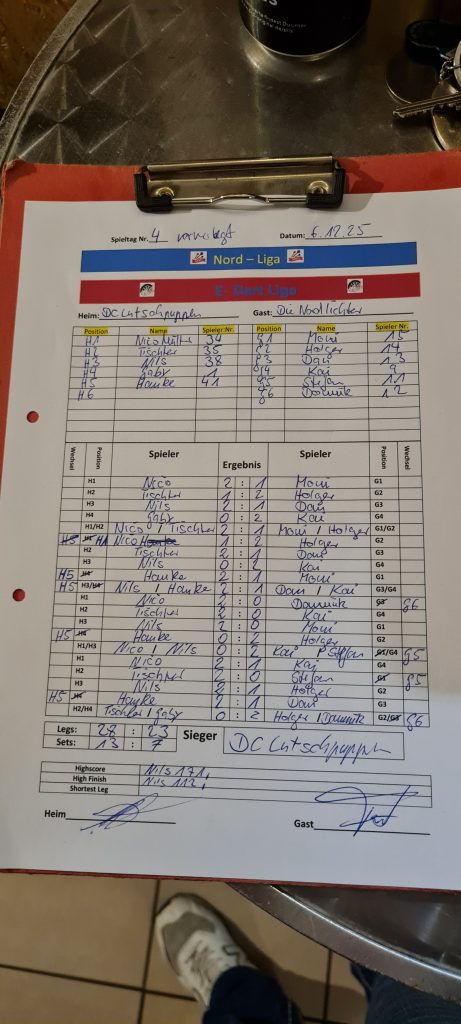 Spieltag Nr. 4 vorverlegt Datum: 6.12.25
Nord – Liga
E- Dart Liga
Heim: DC Lutschpuppen Gast: Die Nordlichter
Position Name Spieler.Nr. Position Name Spieler Nr.
H1 Nico Müller 34 g1 Moni 15
H2 Tischler 35 g2 Holger 14
H3 Nils 38 g3 Dani 13
H4 Gaby 1 g4 Kai 9
H5 Hauke 41 g5 Stefan 11
H6 g6 Dominik 12
Wechsel Position Spieler Ergebnis Spieler Position Wechsel
H1 Nico 2 : 1 Moni G1
H2 Tischler 1 : 2 Holger G2
H3 Nils 2 : 1 Dani G3
H4 Gaby 0 : 2 Kai G4
H1/H2 Nico / Tischler 2 : 1 Moni / Holger G1/G2
H5 H4 H1 Nico Hauke 1 : 2 Holger G2
H2 Tischler 2 : 1 Dani G3
H3 Nils 0 : 2 Kai G4
H5 H4 Hauke 2 : 1 Moni G1
H5 H3/H4 Nils / Hauke 2 : 1 Dani / Kai G3/G4
H1 Nico 2 : 0 Dominik G3 g6
H2 Tischler 2 : 0 Kai G4
H3 Nils 2 : 0 Moni G1
H5 H4 Hauke 0 : 2 Holger G2
H1/H3 Nico / Nils 0 : 2 Kai Stefan G1/G4 g5
H1 Nico 2 : 1 Kai G4
H2 Tischler 2 : 0 Stefan G1 g5
H3 Nils 2 : 1 Holger G2
H5 H4 Hauke 2 : 1 Dani G3
H2/H4 Tischler / Gaby 0 : 2 Holger / Dominik G2/G3 g6
Legs: 28 : 23
Sets: 13 : 7
Sieger DC Lutschpuppen
Highscore Nils 171,
High Finish Nils 112,
Shortest Leg
Heim Gast